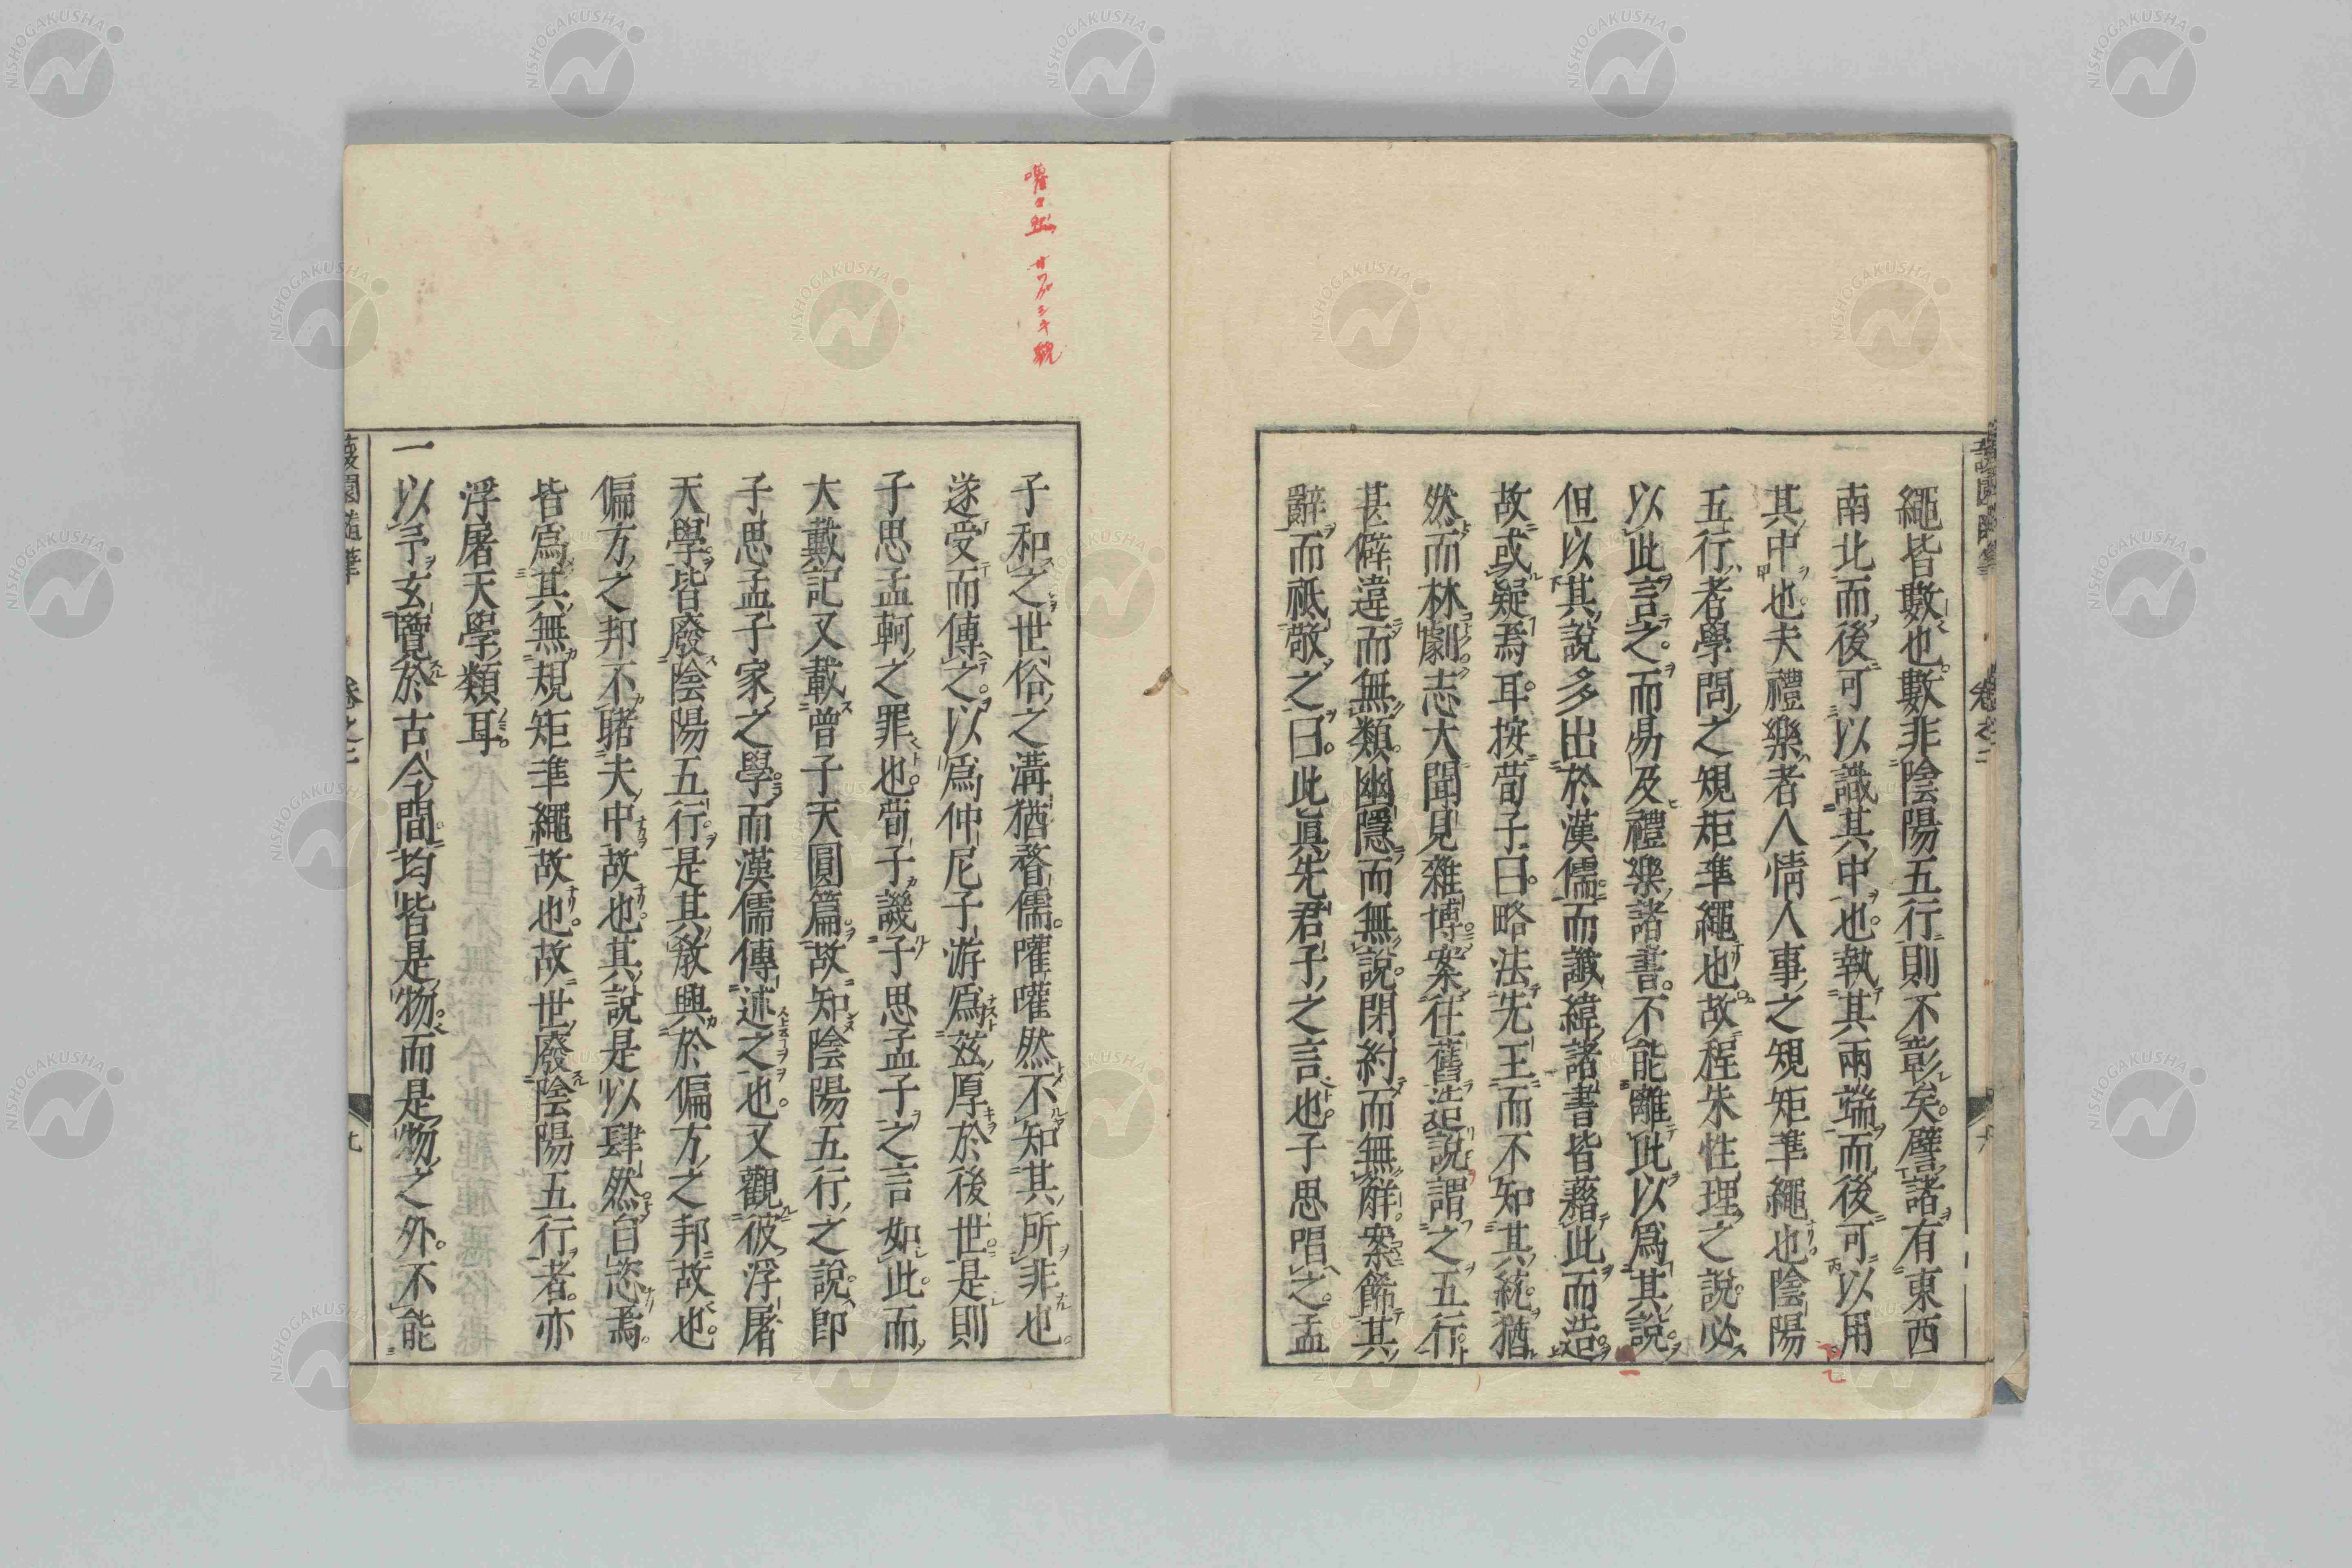 繩皆數也。數非陰陽五行則不彰矣。譬諸有東西
南北而後可以識其中也。執其兩端而後可以用
其中也。夫禮樂者人情人事之規矩準繩也。陰陽
五行者學問之規矩準繩也。故程朱性理之說。必
以此言之。而易及禮樂諸書。不能離此以爲其說。
但以其說多出於漢儒。而讖緯諸書皆藉此而造。
故或疑焉耳。按荀子曰。略法先王而不知其統。猶
然而林劇志大聞見雜博。案往舊造說謂之五行。
甚僻違而無類。幽隱而無說。閉約而無解。案餙其
辭而祇敬之曰。此眞先君子之言也。子思唱之。孟
子和之世俗之溝猶瞀儒。嚾嚾然不知其所非也。
遂受而傳之。以爲仲尼子游爲玆厚於後世。是則
子思孟軻之罪也。荀子譏子思孟子之言如此。而
大戴記又載曾子天圓篇。故知陰陽五行之說。卽
子思孟子家之學。而漢儒傳述之也。又觀彼浮屠
天學。皆廢陰陽五行。是其敎興於偏方之邦故也。
偏方之邦不睹夫中故也。其說是以肆然自恣焉。
皆爲其無規矩準繩故也。故世廢陰陽五行者。亦
浮屠天學類耳。
一以予玄覽於古今間。均皆是物。而是物之外。不能
卷之二
NISHOGAKUSHA